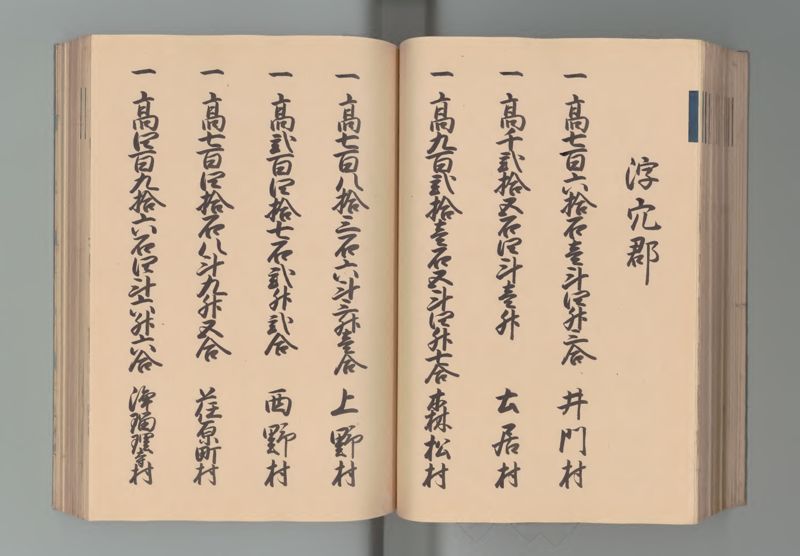 浮穴郡
一 高七百六拾石壱斗四升三合 井門村
一 高千弐拾五石四斗壱升 土居村
一 高九百弐拾壱石五斗四升七合 森松村
一 高七百八拾三石六斗三升壱合 上野村
一 高弐百四拾七石弐升弐合 西野村
一 高七百四拾石八斗九升五合 荏原町村
一 高四百九拾六石四斗六升六合 浄瑠璃寺村